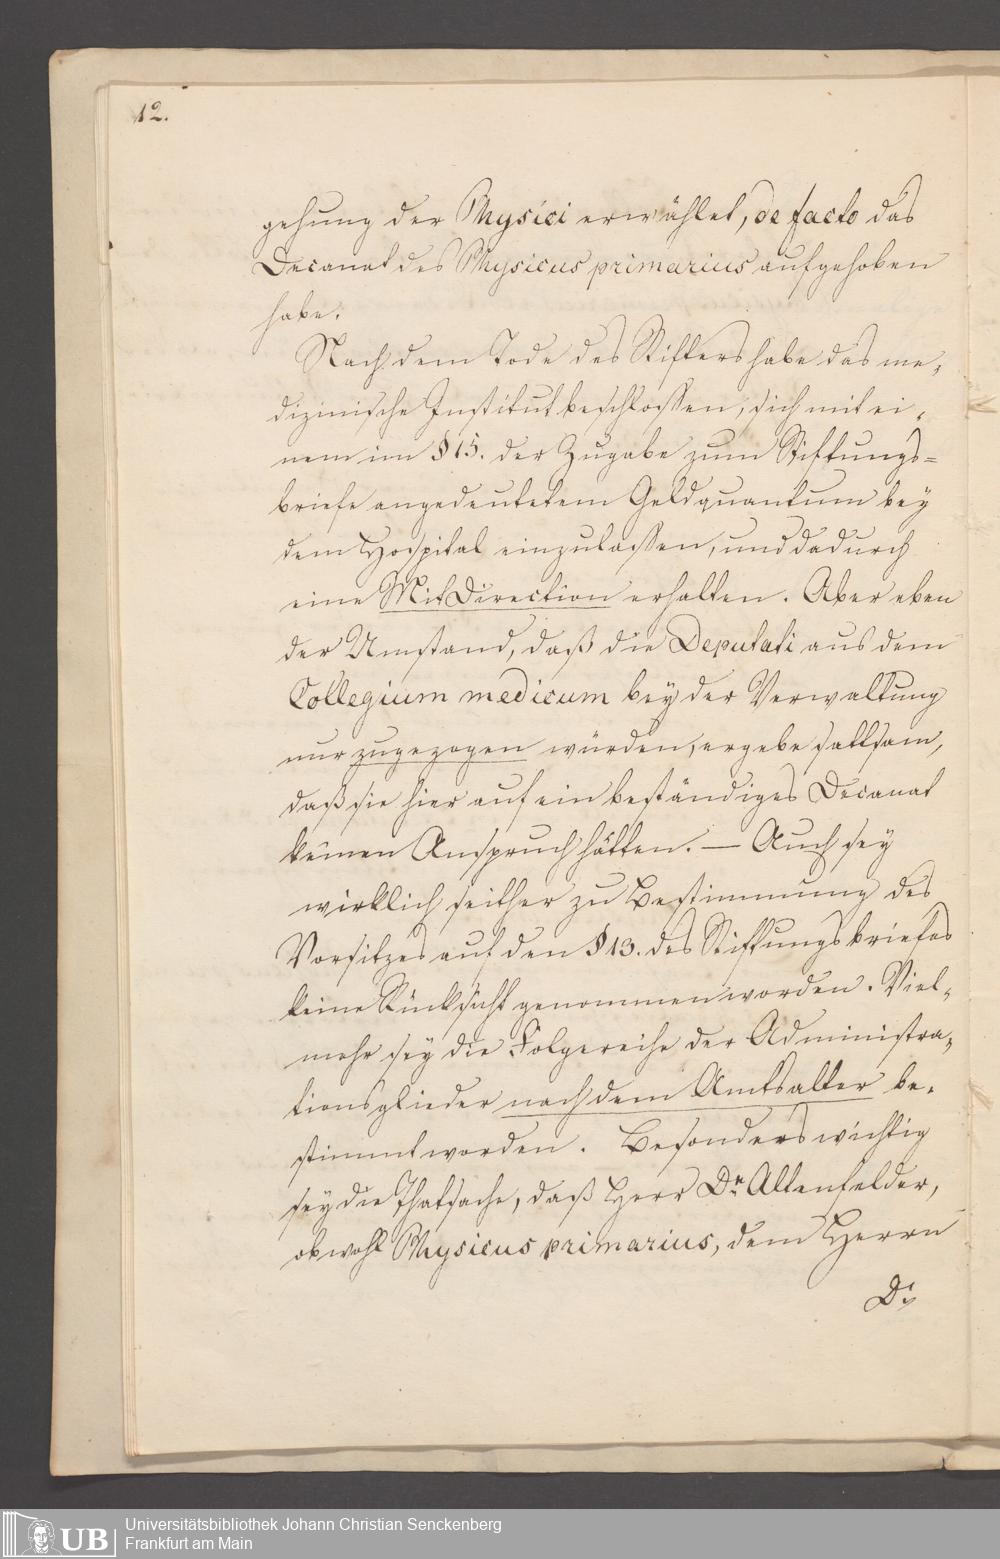 12.
gehung der Physici erwählet, de facto das
Decanat des Physicus primarius aufgehoben
habe.
Nach dem Tode des Stifters habe das me-
dizinische Institut beschlossen, sich mit ei-
nem im § 15. der Zugabe zum Stiftungs=
briefe angedeutetem Geldquantum bey
dem Hospital einzulassen, und dadurch
eine MitDirection erhalten. Aber eben
der Umstand, daß die Deputati aus dem
Collegium medicum bey der Verwaltung
nur zugezogen würden, ergebe sattsam,
daß sie hier auf ein beständiges Decanat
keinen Anspruch hätten. — Auch sey
wirklich seither zu Bestimmung des
Vorsitzes auf den § 13. des Stiftungsbriefes
keine Rücksicht genommen worden. Viel-
mehr sey die Folgereihe der Administra-
tionsglieder nach dem Amtsalter be-
stimmt worden. Besonders wichtig
sey die Thatsache, daß Herr Dr. Altenfelder,
obwohl Physicus primarius, dem Herrn
Dr.
UB
Universitätsbibliothek Johann Christian Senckenberg
Frankfurt am Main